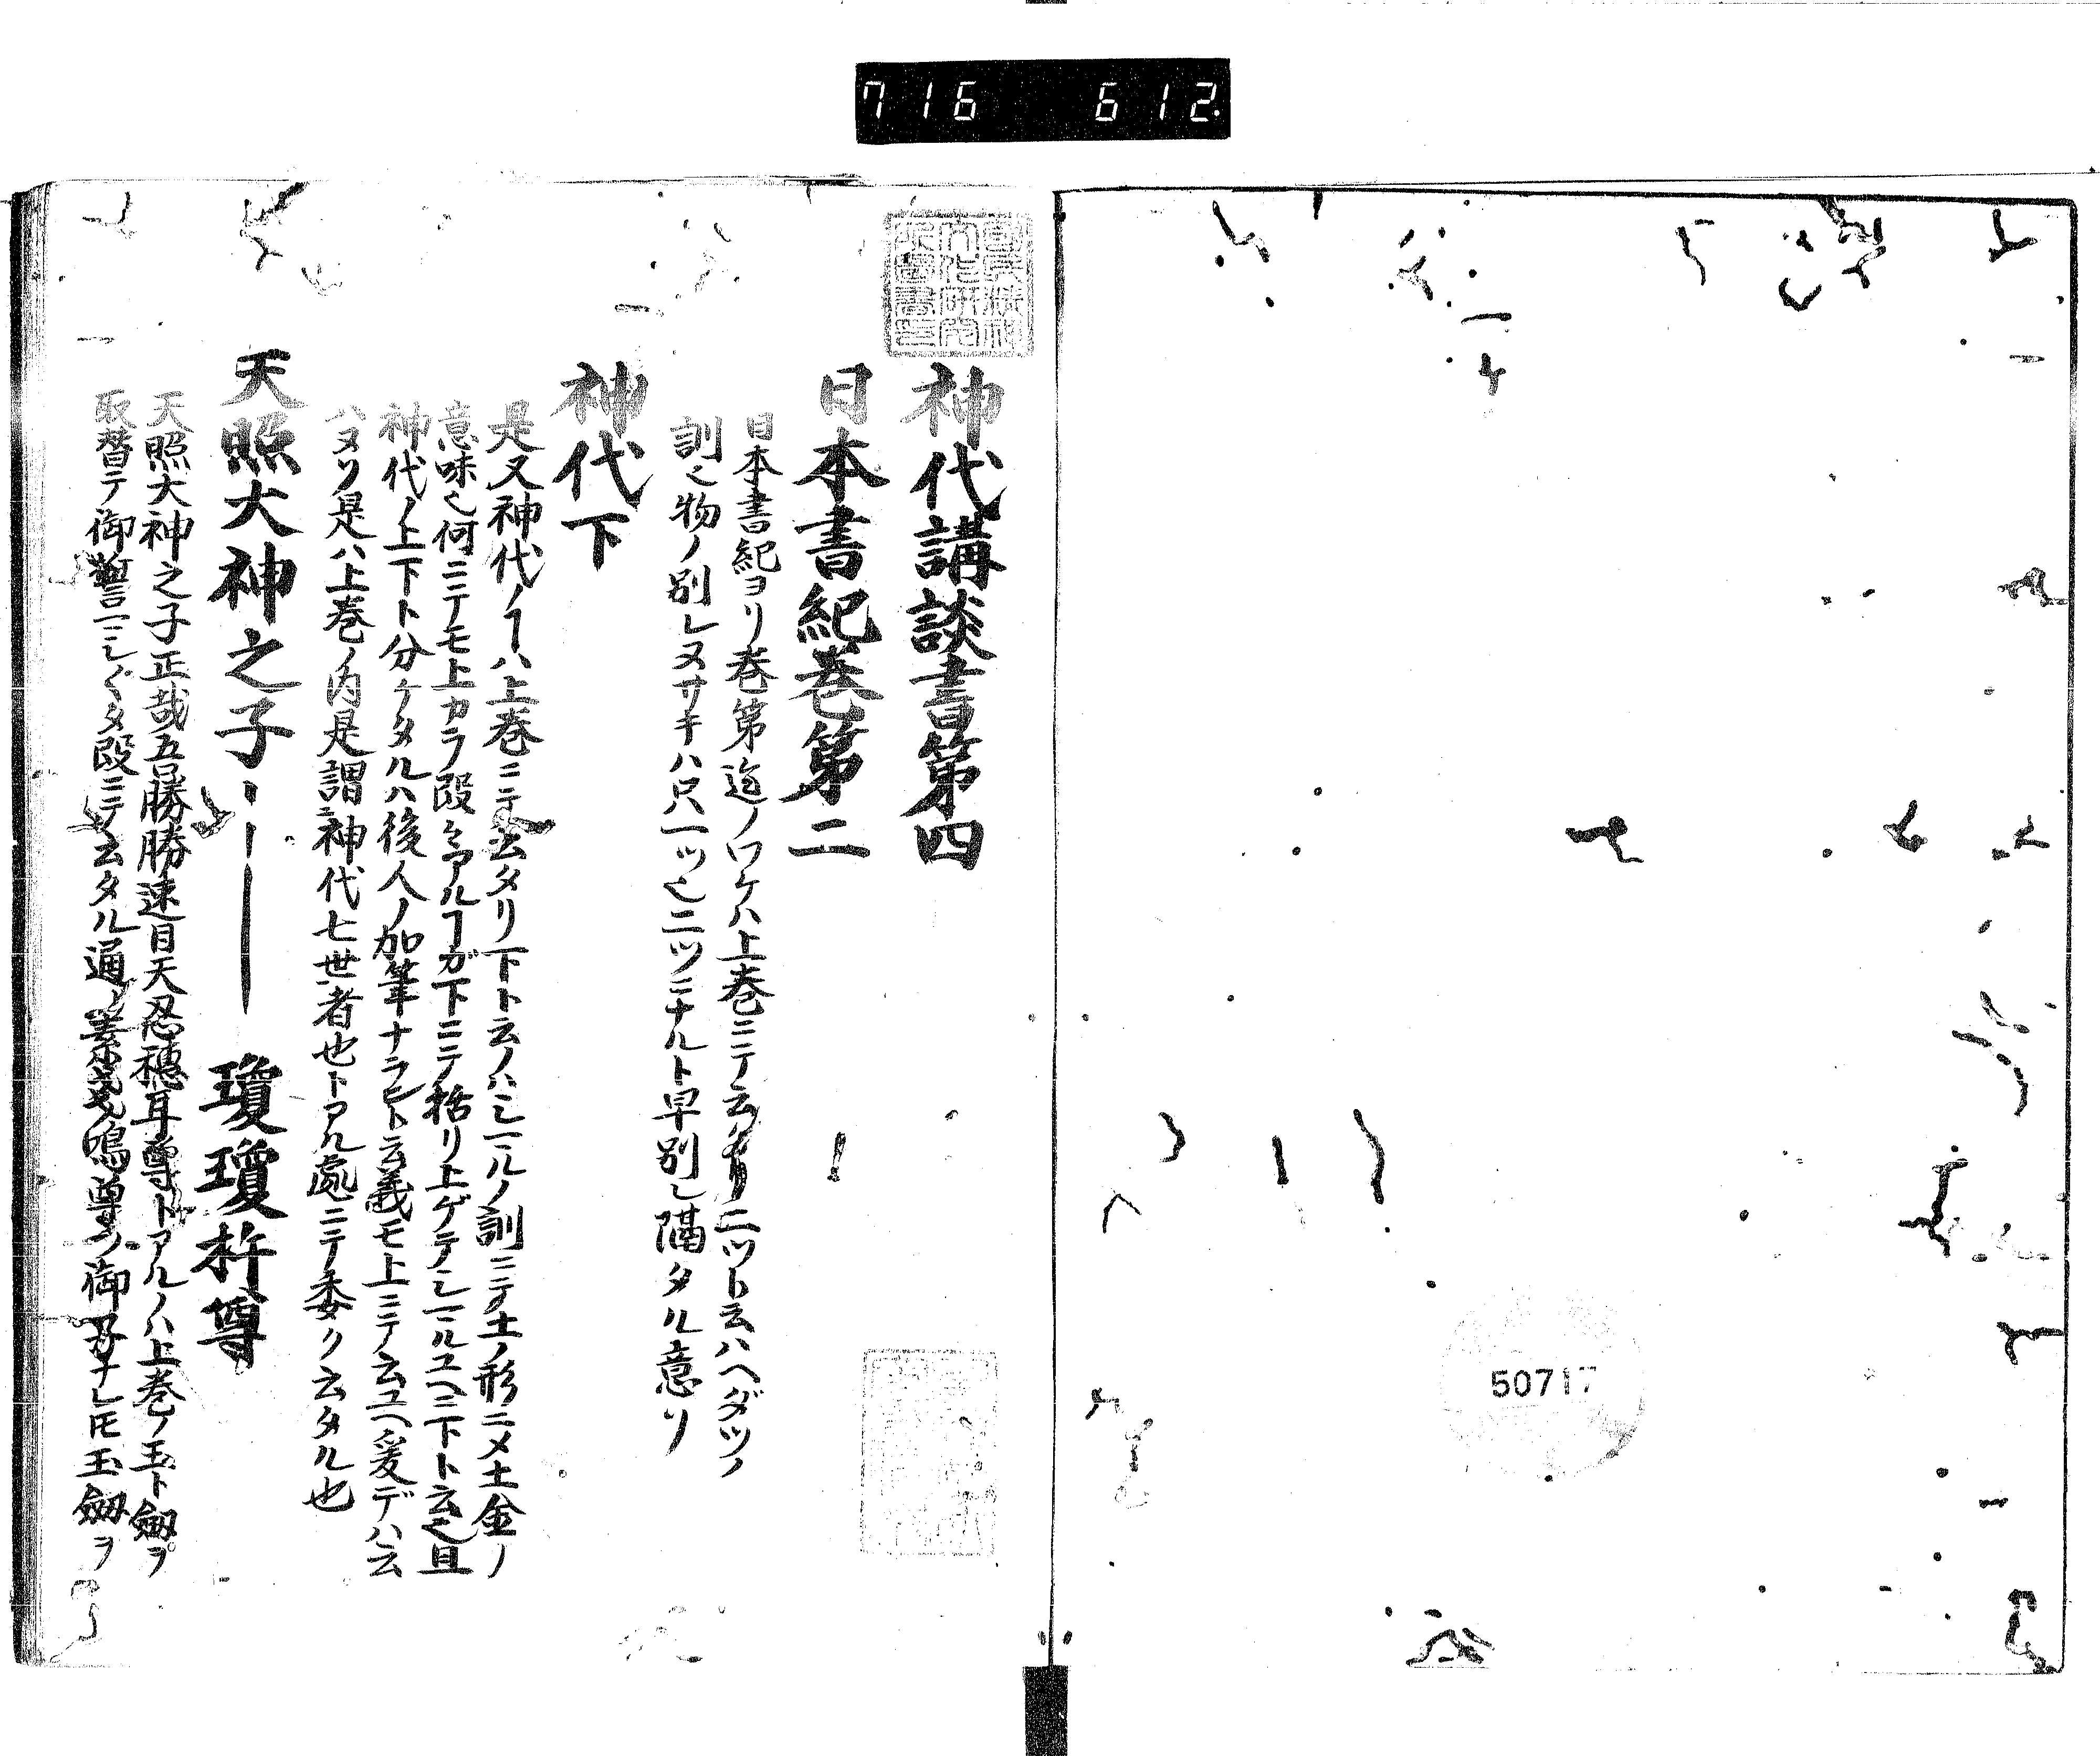 716 612
神代講談書第四
日本書紀巻第二
日本書紀ヨリ巻第迄ノワケハ上巻ニテ云タリ二ツト云ハヘダツノ
訓也物ノ別レヌサキハ只一ツ也二ツニナルト早別レ隔タル意ソ
神代下
是又神代ノヿハ上巻ニテ云タリ下ト云ノハシマルノ訓ニテ土ノ形ニメ土金ノ
意味也何ニテモ上カラ段々アルヿガ下ニテ括リ上ゲテシマルユヘニ下ト云也且
神代ノ上下ト分ケタルハ後人ノ加筆ナラント云義モ上ニテ云ユヘ爰デハ云
ハヌソ是ハ上巻ノ内是謂神代七世者也トアル處ニテ委ク云タル也
天照大神之子 瓊瓊杵尊
天照大神之子正哉吾勝勝速日天忍穂耳尊トアルノハ上巻ノ玉ト劔ヲ
取替テ御誓ニ段ニテ云タル通ノ素戔嗚尊ノ御子ナレ𪜈玉劔ヲ
50717